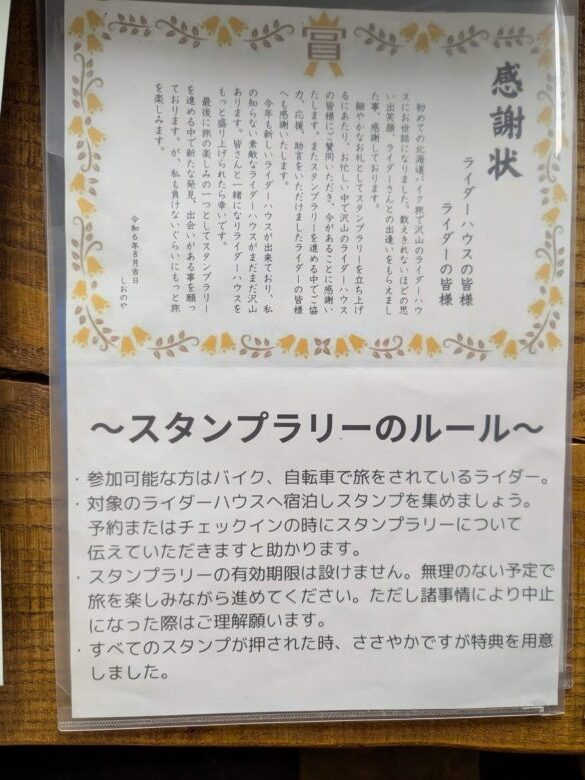 賞
感謝状
ライダーハウスの皆様
ライダーの皆様
初めての北海道バイク旅で沢山のライダーハウ
スにお世話になりました。数えきれないほどの思
い出笑顔、ライダーさんとの出逢いをもらえまし
た事、感謝しております。
細やかなお礼としてスタンプラリーを立ち上げ
るにあたり、お忙しい中で沢山のライダーハウス
の皆様にご賛同いただき、今があることに感謝い
たします。またスタンプラリーを進める中でご協
力、応援、助言をいただけましたライダーの皆様
へも感謝いたします。
今年も新しいライダーハウスが出来ており、私
の知らない素敵なライダーハウスがまだまだ沢山
あります。皆さんと一緒になりライダーハウスを
もっと盛り上げられたら幸いです。
最後に旅の楽しみの一つとしてスタンプラリー
を進める中で新たな発見、出会いがある事を願っ
ております。が、私も負けないぐらいにもっと旅
を楽しみます。
令和6年8月吉日
しおのや
～スタンプラリーのルール～
・参加可能な方はバイク、自転車で旅をされているライダー。
・対象のライダーハウスへ宿泊しスタンプを集めましょう。
予約またはチェックインの時にスタンプラリーについて
伝えていただきますと助かります。
・スタンプラリーの有効期限は設けません。無理のない予定で
旅を楽しみながら進めてください。ただし諸事情により中止
になった際はご理解願います。
・すべてのスタンプが押された時、ささやかですが特典を用意
しました。